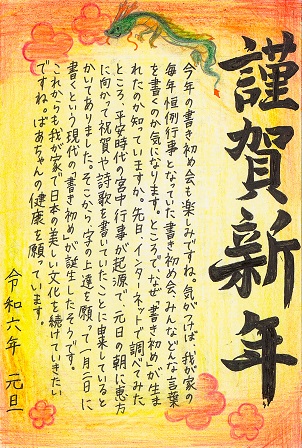 謹賀新年
今年の書き初め会も楽しみですね。気がつけば、我が家の
毎年恒例行事となっていた書き初め会、みんなどんな言葉
を書くのか気になります。ところで、なぜ「書き初め」が生ま
れたのか知っていますか。先日インターネットで調べてみた
ところ、平安時代の宮中行事が起源で、元日の朝に恵方
に向かって祝賀や詩歌を書いていたことに由来していると
かいてありました。そこから字の上達を願って一月二日に
書くという現代の「書き初め」が誕生したそうです。
これからも我が家で日本の美しい文化を続けていきたい
ですね。ばあちゃんの健康を願っています。
令和六年 元旦